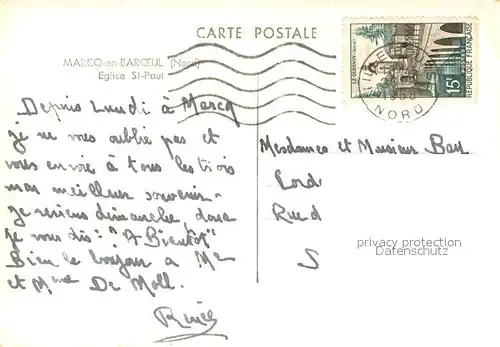 CARTE POSTALE
MARCQ-en-BARŒUL (Nord)
Eglise St-Paul
LE QUESNOY NORD
15F
REPUBLIQUE FRANÇAISE
LILLE
NORD
Depuis Lundi à Marcq
je ne vous oublie pas et
vous envoie à tous les trois
mon meilleur souvenir.
Je reviens dimanche, donc
je vous dis: "A Bientôt"
Bien le bonjour à Mr
et Mme De Moll.
Mesdames et Monsieur Bar
Rue d
S
privacy protection
Datenschutz